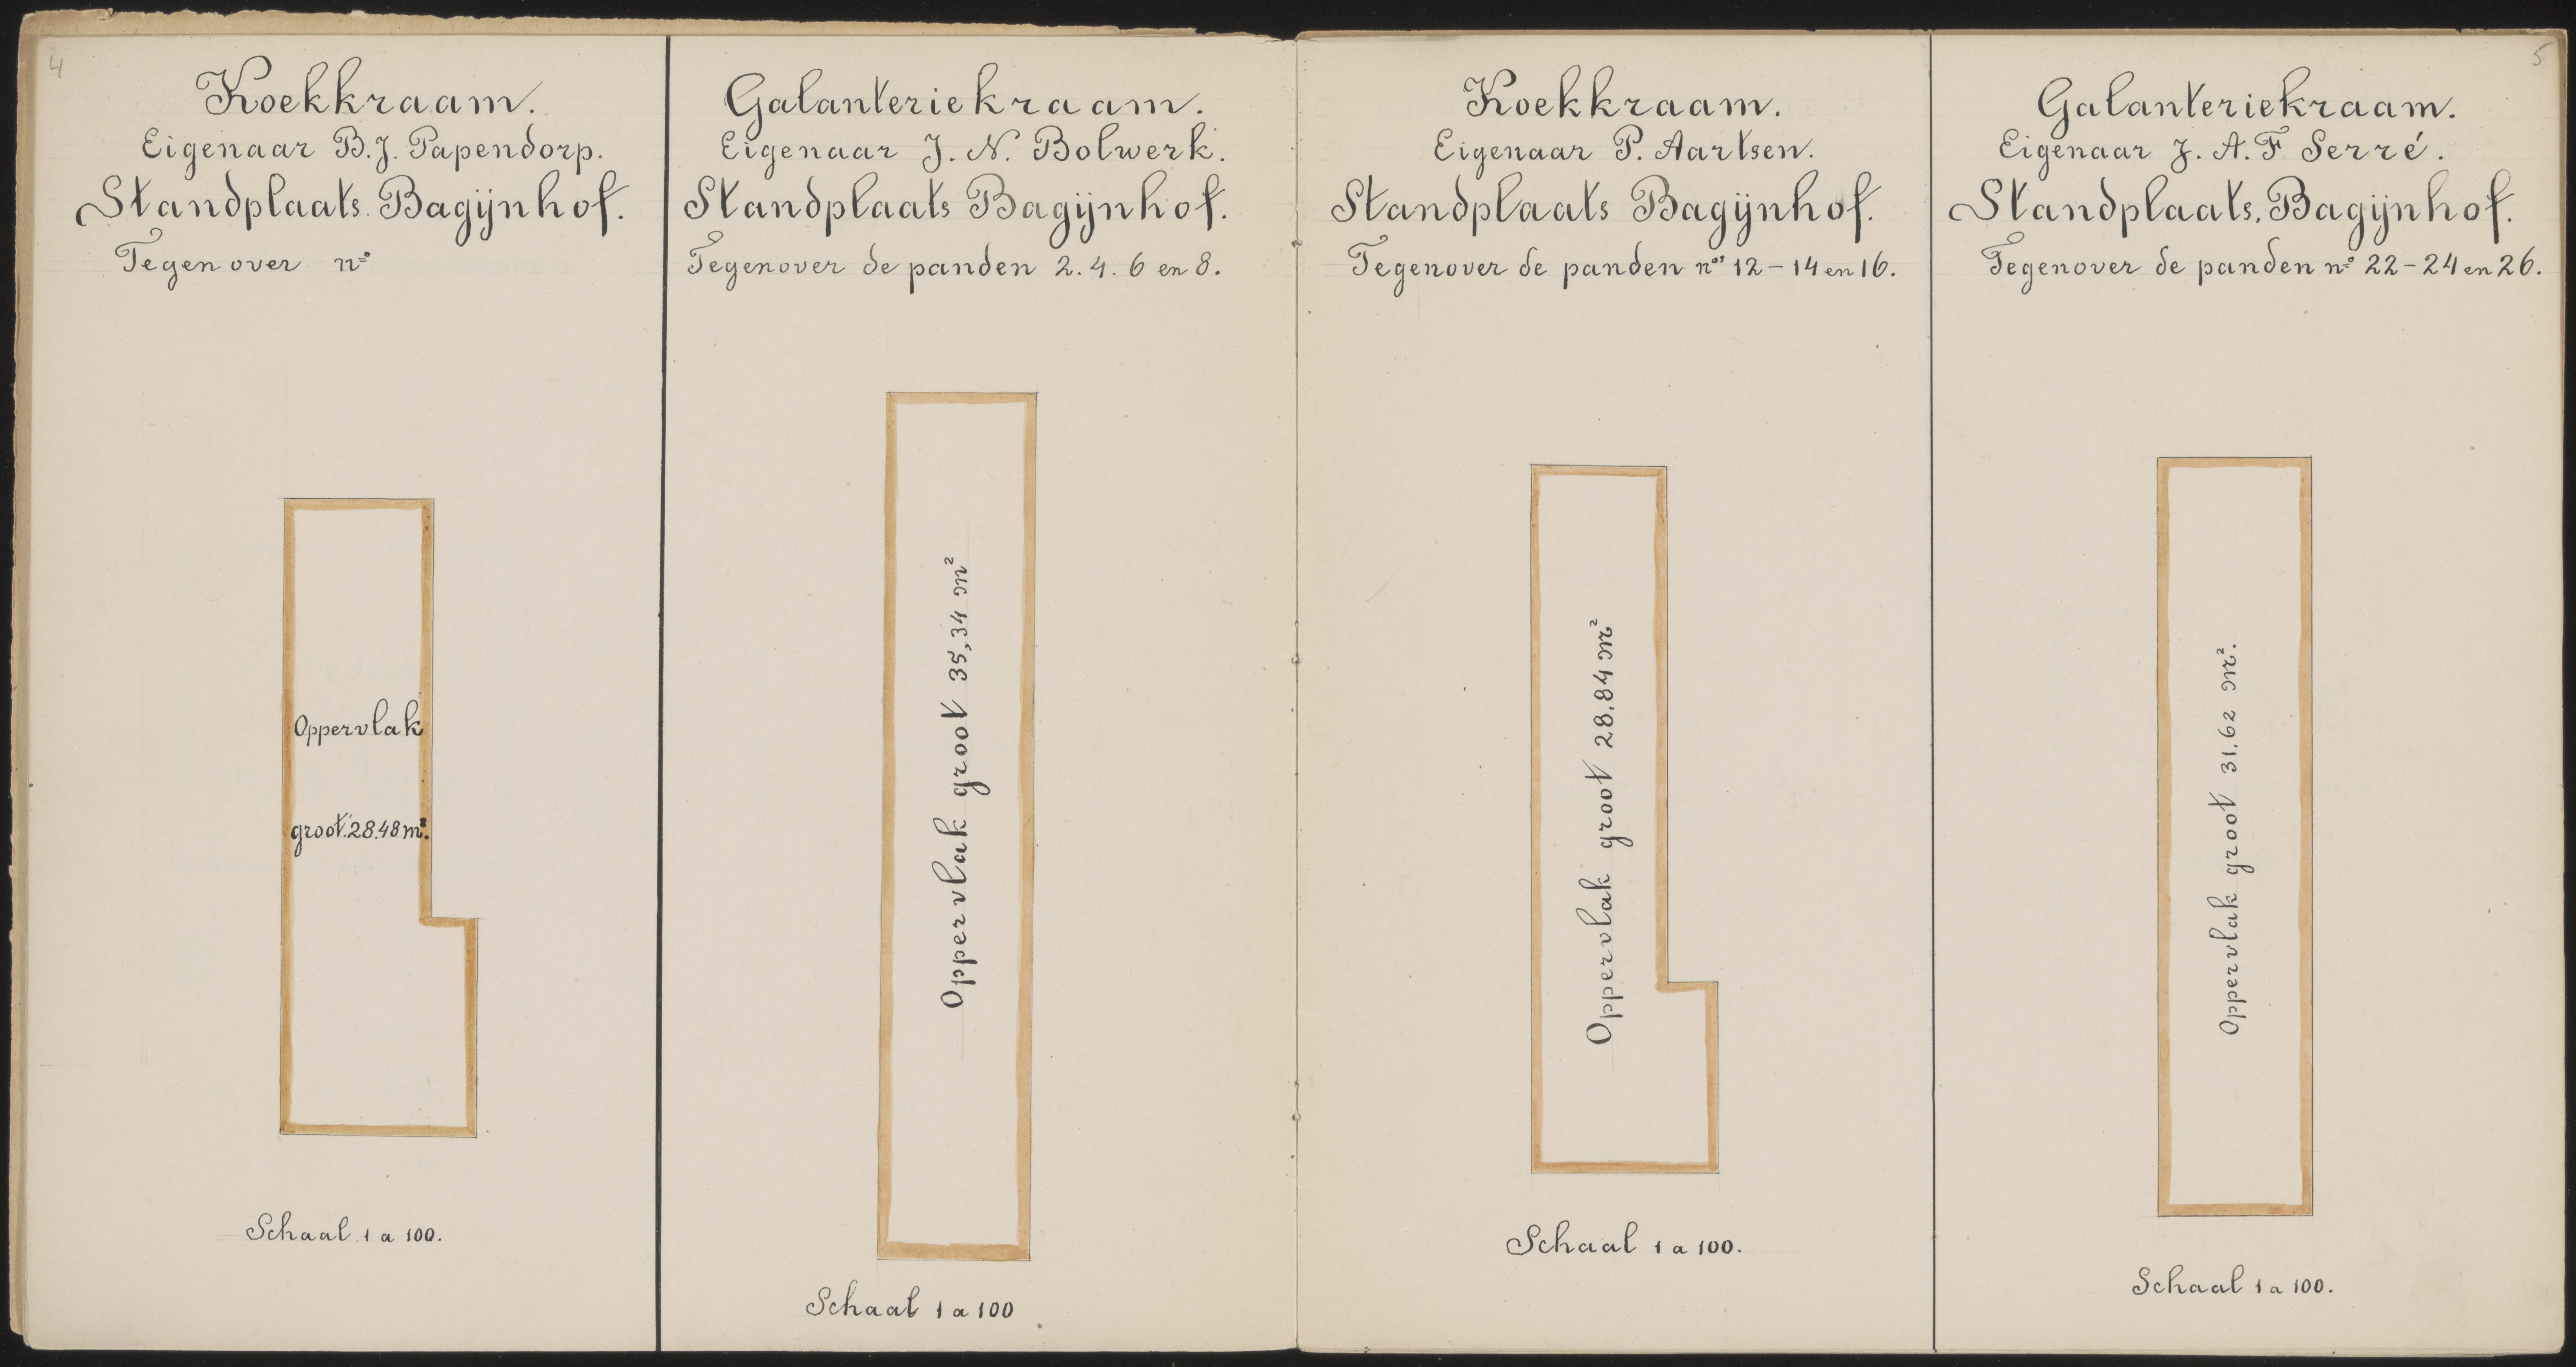 4
Koekkraam.
Eigenaar B. J. Papendorp.
Standplaats. Bagijnhof.
Tegenover nº
Oppervlak
groot. 28.48 m².
Schaal 1 a 100.
Galanteriekraam.
Eigenaar J. N. Bolwerk.
Standplaats Bagijnhof.
Tegenover de panden 2. 4. 6 en 8.
Oppervlak groot 35,34 m²
Schaal 1 a 100
Koekkraam.
Eigenaar P. Aartsen.
Standplaats Bagijnhof.
Tegenover de panden nos 12 - 14 en 16.
Oppervlak groot 28.84 m²
Schaal 1 a 100.
5
Galanteriekraam.
Eigenaar J. A. F Serré.
Standplaats. Bagijnhof.
Tegenover de panden nº 22 - 24 en 26.
Oppervlak groot 31.62 m².
Schaal 1 a 100.